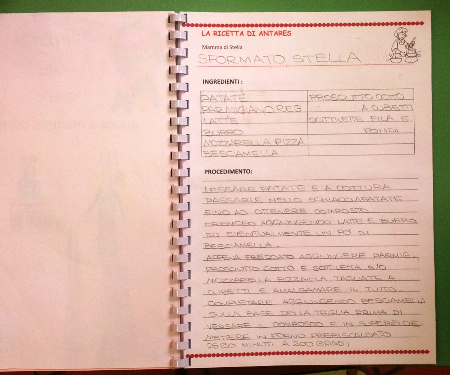 LA RICETTA DI ANTARES
Mamma di Stella
SFORMATO STELLA
INGREDIENTI :
PATATE
PROSCIUTTO COTTO
PARMIGIANO REG
A CUBETTI
LATTE
SOTTILETTE FILA E
BURRO
FONDI
MOZZARELLA PIZZA
BESCIAMELLA
PROCEDIMENTO:
LESSARE PATATE E A COTTURA
PASSARLE NELLO SCHIACCIAPATATE
FINO AD OTTENERE COMPOSTO
CREMOSO AGGIUNGENDO LATTE E BURRO
ED EVENTUALMENTE UN PO' DI
BESCIAMELLA.
APPENA FREDDATO AGGIUNGERE PARMIG.
PROSCIUTTO COTTO E SOTTILETTA E/O
MOZZARELLA PIZZAIOLA TAGLIATE A
CUBETTI E AMALGAMARE IL TUTTO
COMPLETARE AGGIUNGENDO BESCIAMELLA
SULLA BASE DELLA TEGLIA PRIMA DI
VERSARE IL COMPOSTO E IN SUPERFICIE
METTERE IN FORNO PRERISCALDATO
25/30 MINUTI A 200 GRADI